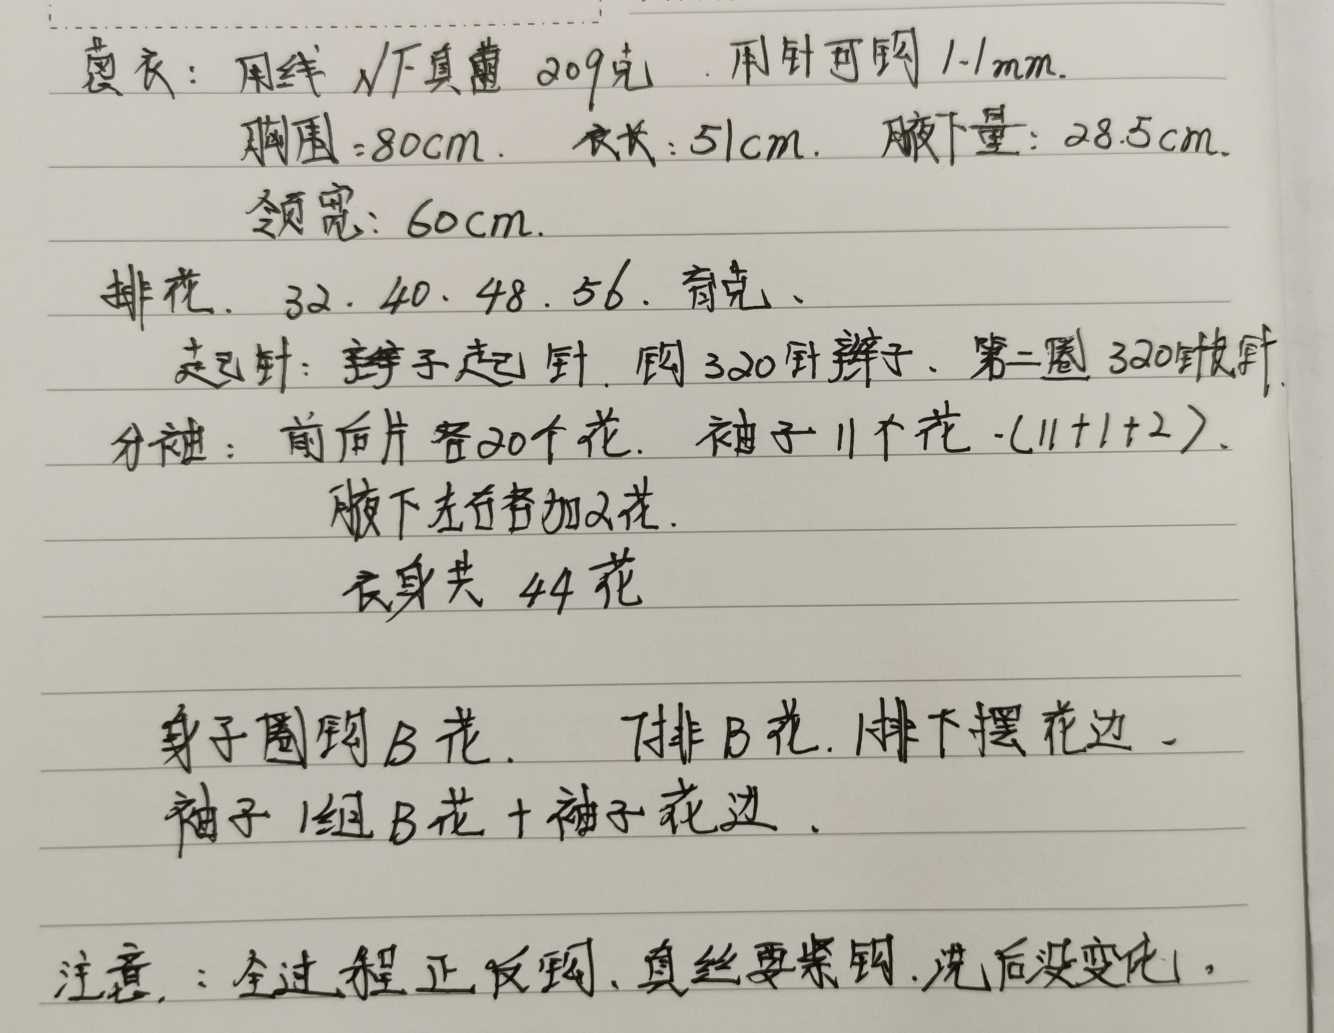 衣：用线 真 209克．用针可钩 1.1mm.
胸围=80cm. 衣长：51cm. 腋下量：28.5cm.
领宽：60cm.
排花．32．40．48．56．育克、
起针：辫子起针．钩320针辫子、第二圈 320针短针.
分袖：前后片各20个花. 袖子11个花．(11+1+2)．
腋下左右各加2花.
衣身共 44花
身子圈钩B花. 7排B花．1排下摆花边．
袖子1组B花+袖子花边．
注意：全过程正反钩、真丝要紧钩．洗后没变化．